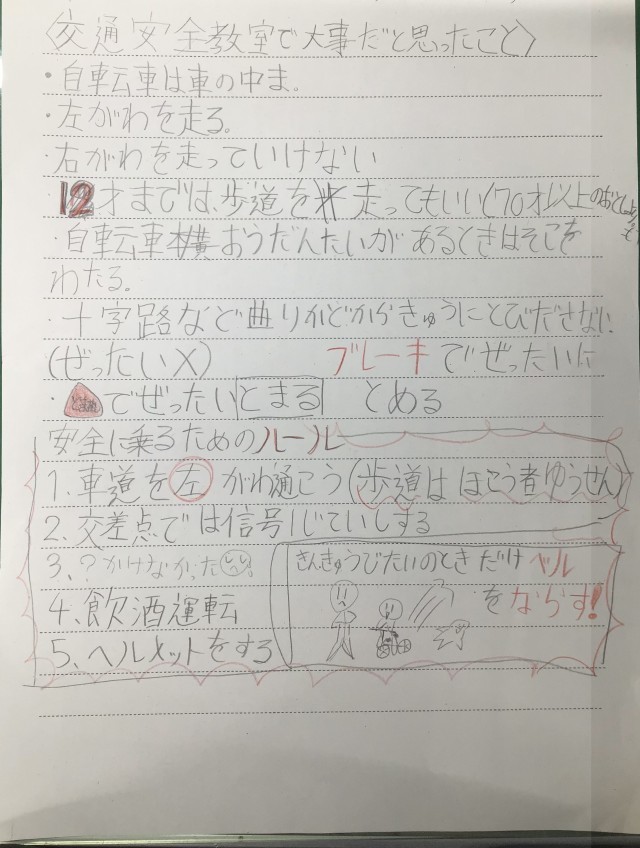 〈交通安全教室で大事だと思ったこと〉
・自転車は車の中ま。
・左がわを走る。
・右がわを走っていけない
・12才までは、歩道を走ってもいい(70才以上のおとしよりも
・自転車横おうだんたいがあるときはそこを
わたる。
・十字路など曲りかどからきゅうにとびださない。
(ぜったい×)
ブレーキでぜったいに
・とまれでぜったいとまる とめる
安全に乗るためのルール
1. 車道を左がわ通こう(歩道はほこう者ゆうせん)
2. 交差点では信号していしする
3、?かけなかった
きんきゅうじたいのときだけベル
をならす!
4、飲酒運転
5、ヘルメットをする